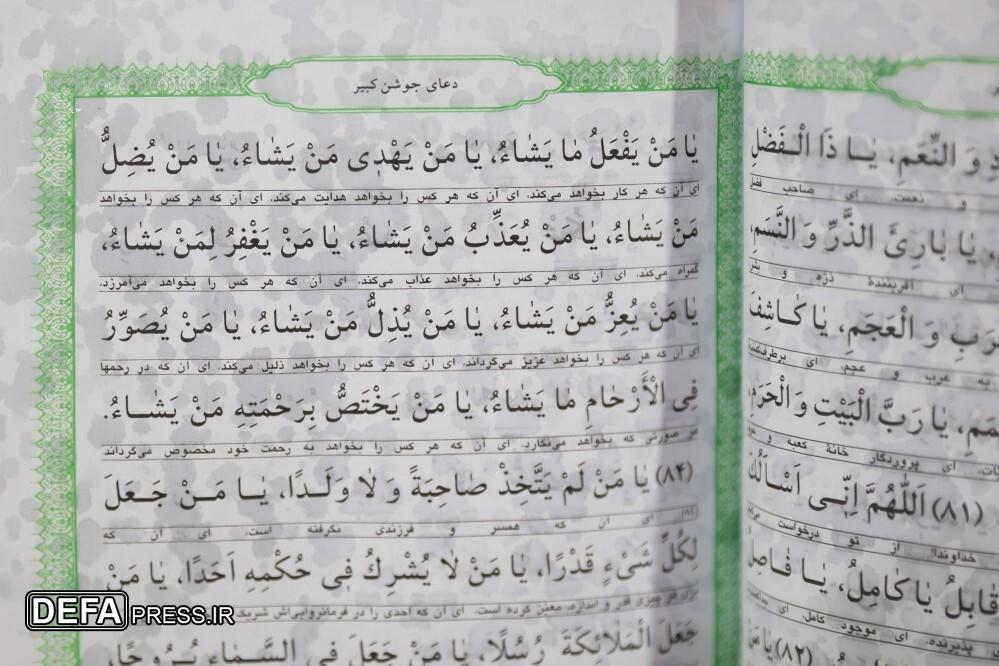 دعای جوشن کبیر
یٰا مَنْ یَفْعَلُ مٰا یَشٰاءُ، یٰا مَنْ یَهْدِی مَنْ یَشٰاءُ، یٰا مَنْ یُضِلُّ
ای آن که هر کار بخواهد می‌کند، ای آن که هر کس را بخواهد هدایت می‌کند، ای آن که هر کس را بخواهد
مَنْ یَشٰاءُ، یٰا مَنْ یُعَذِّبُ مَنْ یَشٰاءُ، یٰا مَنْ یَغْفِرُ لِمَنْ یَشٰاءُ،
گمراه می‌کند. ای آن که هر کس را بخواهد عذاب می‌کند. ای آن که هر کس را بخواهد می‌آمرزد،
یٰا مَنْ یُعِزُّ مَنْ یَشٰاءُ، یٰا مَنْ یُذِلُّ مَنْ یَشٰاءُ، یٰا مَنْ یُصَوِّرُ
ای آن که هر کس را بخواهد عزیز می‌گرداند، ای آن که هر کس را بخواهد ذلیل می‌کند. ای آن که در رحمها
فِی الْأَرْحٰامِ مٰا یَشٰاءُ، یٰا مَنْ یَخْتَصُّ بِرَحْمَتِهِ مَنْ یَشٰاءُ.
هر صورتی که بخواهد می‌نگارد. ای آن که هر کس را بخواهد به رحمت خود مخصوص می‌گرداند
(۸۴) یٰا مَنْ لَمْ یَتَّخِذْ صٰاحِبَةً وَ لاٰ وَلَدًا، یٰا مَنْ جَعَلَ
ای آن که همسر و فرزندی نگرفته است. ای آن که
لِکُلِّ شَیْءٍ قَدْرًا، یٰا مَنْ لاٰ یُشْرِكُ فِی حُکْمِهِ اَحَدًا، یٰا مَنْ
برای هر چیزی قدر و اندازه، معین کرده است. ای آن که احدی را در فرمانروایی‌اش شریک
جَعَلَ الْمَلاٰئِکَةَ رُسُلًا، یٰا مَنْ جَعَلَ فِی السَّمٰاءِ بُرُوجًا،
وَ النِّعَمِ، یٰا ذَا الْفَضْلِ
و نعمت. ای صاحب فضل
یٰا بٰارِئَ الذَّرِّ وَ النَّسَمِ،
ای آفرینندهٔ ذره و بشر
وَ الْعَجَمِ، یٰا کٰاشِفَ
به عرب و عجم، ای برطرف‌کننده
یٰا رَبَّ الْبَیْتِ وَ الْحَرَمِ
ای پروردگار خانهٔ کعبه و
(۸۱) اَللّٰهُمَّ اِنِّی اَسْأَلُكَ
خداوندا! از تو درخواست
یٰا کٰامِلُ، یٰا فٰاصِلُ
پذیرنده. ای موجود کامل.
(۸۲) یٰا مَنْ
DEFAPRESS.IR